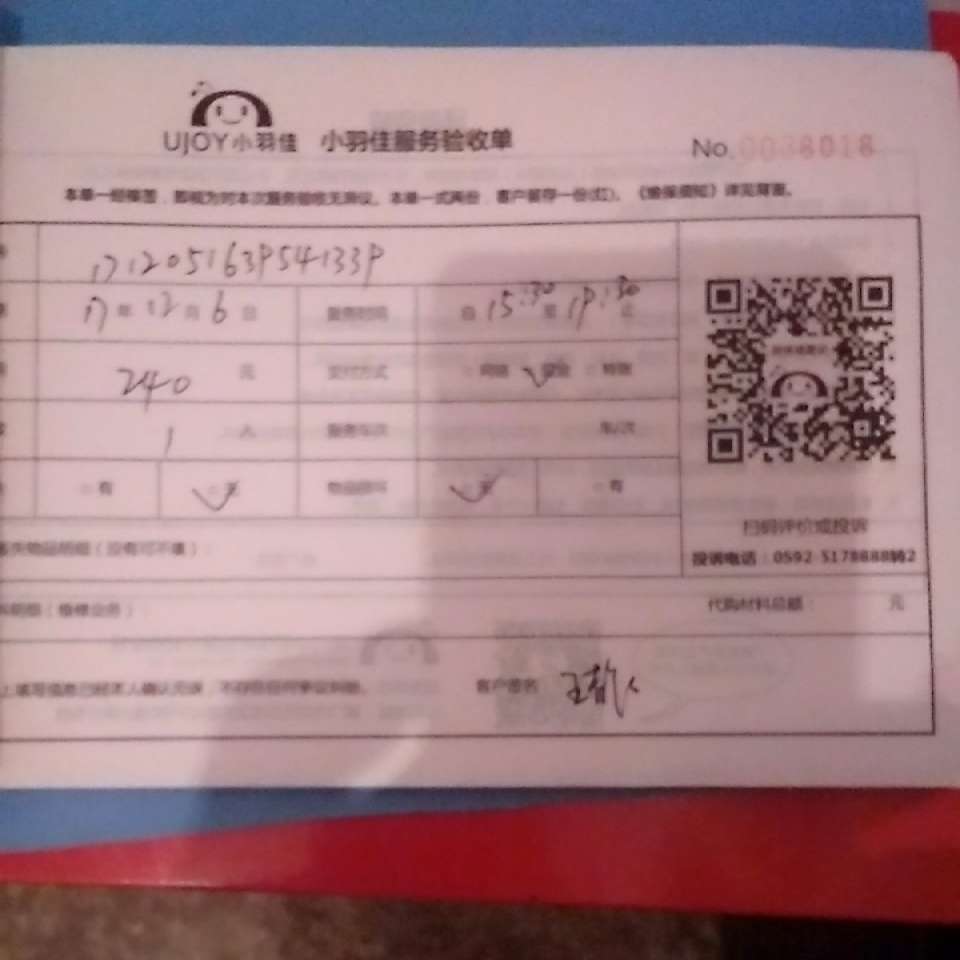 UJOY小羽佳 小羽佳服务验收单 No.0038018
本单一经接签，即视为对本次服务验收无异议。本单一式两份，客户留存一份(红)。《验报须知》详见背面。
17年12月6日 服务时间 自15:30至19:30止
240元 支付方式 网银 现金 转账
1人 服务车次 车/次
有 无 物品损坏 无 有
丢失物品明细（没有可不填）：
扫码评价或投诉
投诉电话：0592-5178888转2
料明细（维修业务）： 代购材料总额： 元
上填写信息已经本人确认无误，不存在任何争议纠纷。 客户签名